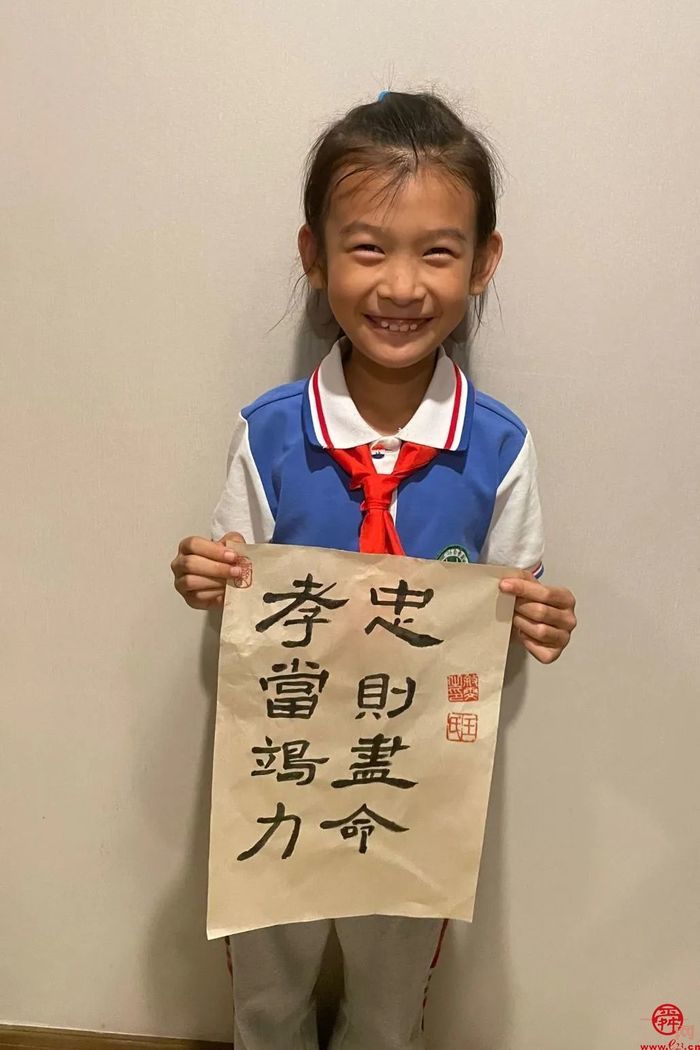 忠則盡命
孝當竭力
舜网
www.e23.cn